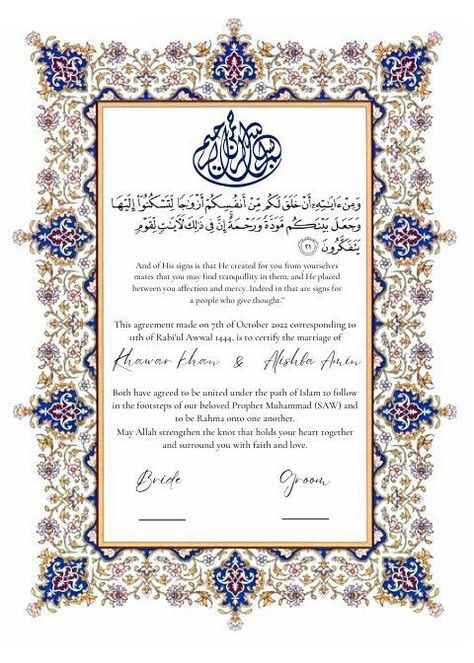 بسم الله الرحمن الرحيم
وَمِنْ ءَايَٰتِهِۦٓ أَنْ خَلَقَ لَكُم مِّنْ أَنفُسِكُمْ أَزْوَٰجًا لِّتَسْكُنُوٓا۟ إِلَيْهَا
وَجَعَلَ بَيْنَكُم مَّوَدَّةً وَرَحْمَةً ۚ إِنَّ فِى ذَٰلِكَ لَءَايَٰتٍ لِّقَوْمٍ
يَتَفَكَّرُونَ ٢١
And of His signs is that He created for you from yourselves
mates that you may find tranquillity in them; and He placed
between you affection and mercy. Indeed in that are signs for
a people who give thought."
This agreement made on 7th of October 2022 corresponding to
11th of Rabi'ul Awwal 1444, is to certify the marriage of
Khawar Khan & Alishba Amin
Both have agreed to be united under the path of Islam to follow
in the footsteps of our beloved Prophet Muhammad (SAW) and
to be Rahma onto one another.
May Allah strengthen the knot that holds your heart together
and surround you with faith and love.
Bride Groom